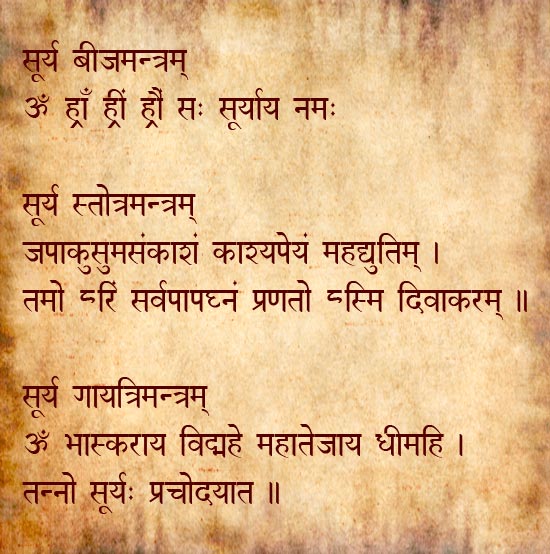 सूर्य बीजमन्त्रम्
ॐ ह्राँ ह्रीं ह्रौं सः सूर्याय नमः
सूर्य स्तोत्रमन्त्रम्
जपाकुसुमसंकाशं काश्यपेयं महद्युतिम् ।
तमो ऽरिं सर्वपापघ्नं प्रणतो ऽस्मि दिवाकरम् ॥
सूर्य गायत्रिमन्त्रम्
ॐ भास्कराय विद्महे महातेजाय धीमहि ।
तन्नो सूर्यः प्रचोदयात ॥